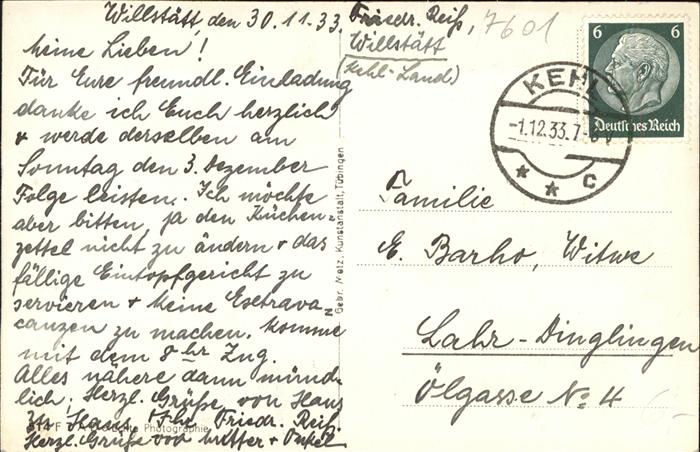 Willstätt, den 30.11.33.
Meine Lieben!
Für Eure freundl. Einladung
danke ich Euch herzlich
& werde derselben am
Sonntag den 3. Dezember
Folge leisten. Ich möchte
aber bitten, ja den Küchen=
zettel nicht zu ändern & das
fällige Eintopfgericht zu
servieren & keine Esetrava=
canzen zu machen. Komme
mit dem 8 hr Zug.
Alles nähere dann münd-
lich. Herzl. Grüße von Haus
zu Haus Ihr Friedr. Reiß.
Herzl. Grüße von Mutter & Onkel
Echte Photographie
Gebr. Metz, Kunstanstalt, Tübingen
Friedr. Reiß, 7601
Willstätt
(Kehl-Land)
6 6
Deutsches Reich
KEHL
-1.12.33.7-8V
* * c
Familie
E. Barho, Witwe
Lahr-Dinglingen
Ölgasse No 4